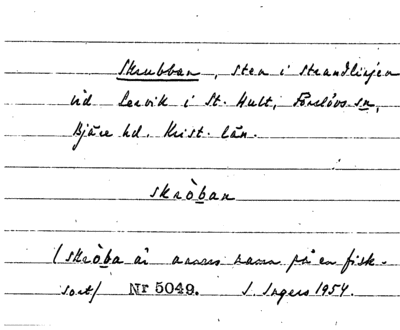 Skrubban, sten i strandlinjen
vid Lervik i St. Hult, Förslövs sn,
Bjäre hd. Krist. län.
skròban
/skròba är annars namn på en fisk-
sort/ Nr 5049. I. Ingers 1954.